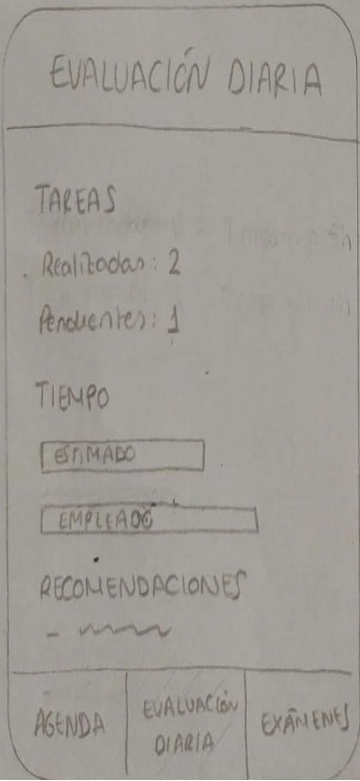 EVALUACIÓN DIARIA
TAREAS
Realizadas: 2
Pendientes: 1
TIEMPO
ESTIMADO
EMPLEADO
RECOMENDACIONES
-
AGENDA
EVALUACIÓN
DIARIA
EXÁMENES